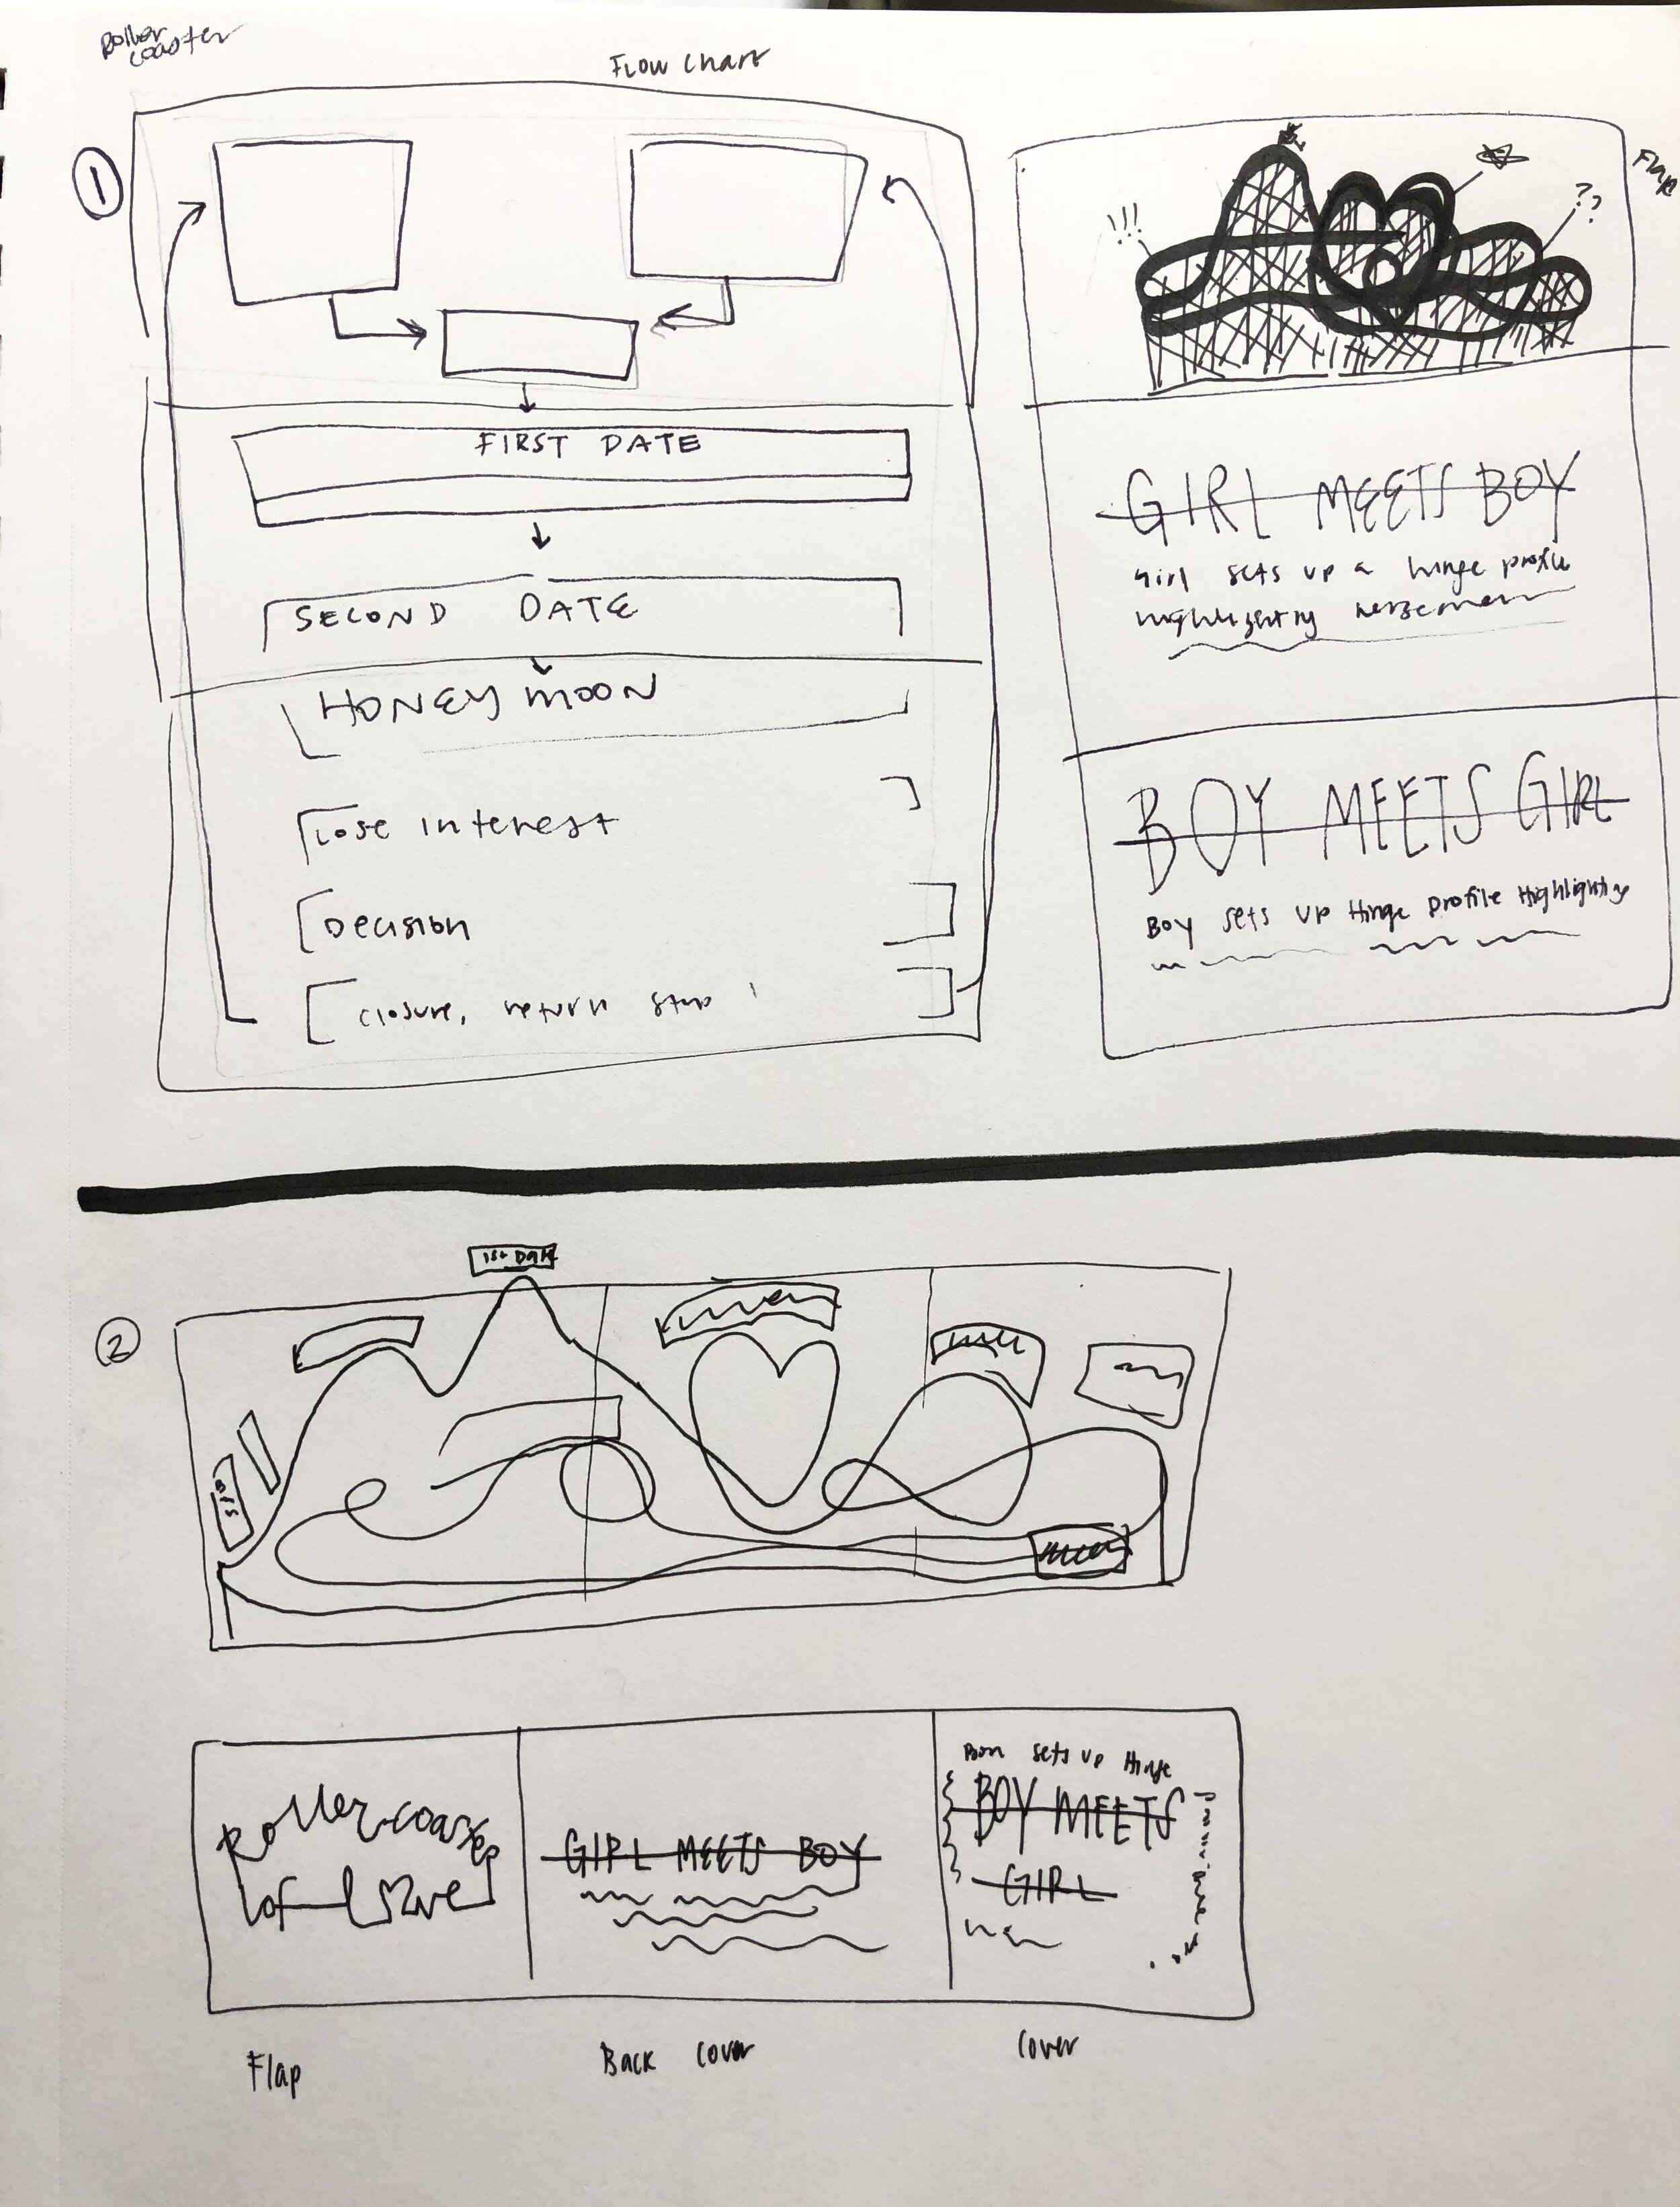 Roller
coaster
Flow Chart
1
FIRST DATE
SECOND DATE
HONEYMOON
Lose interest
Decision
closure, return
!!!
??
Flap
GIRL MEETS BOY
Girl sets up a hinge profile
highlighting
BOY MEETS GIRL
Boy sets up Hinge profile Highlighting
2
1st Date
Rollercoaster
of Love
GIRL MEETS BOY
sets up Hinge
BOY MEETS
GIRL
Flap
Back cover
Cover